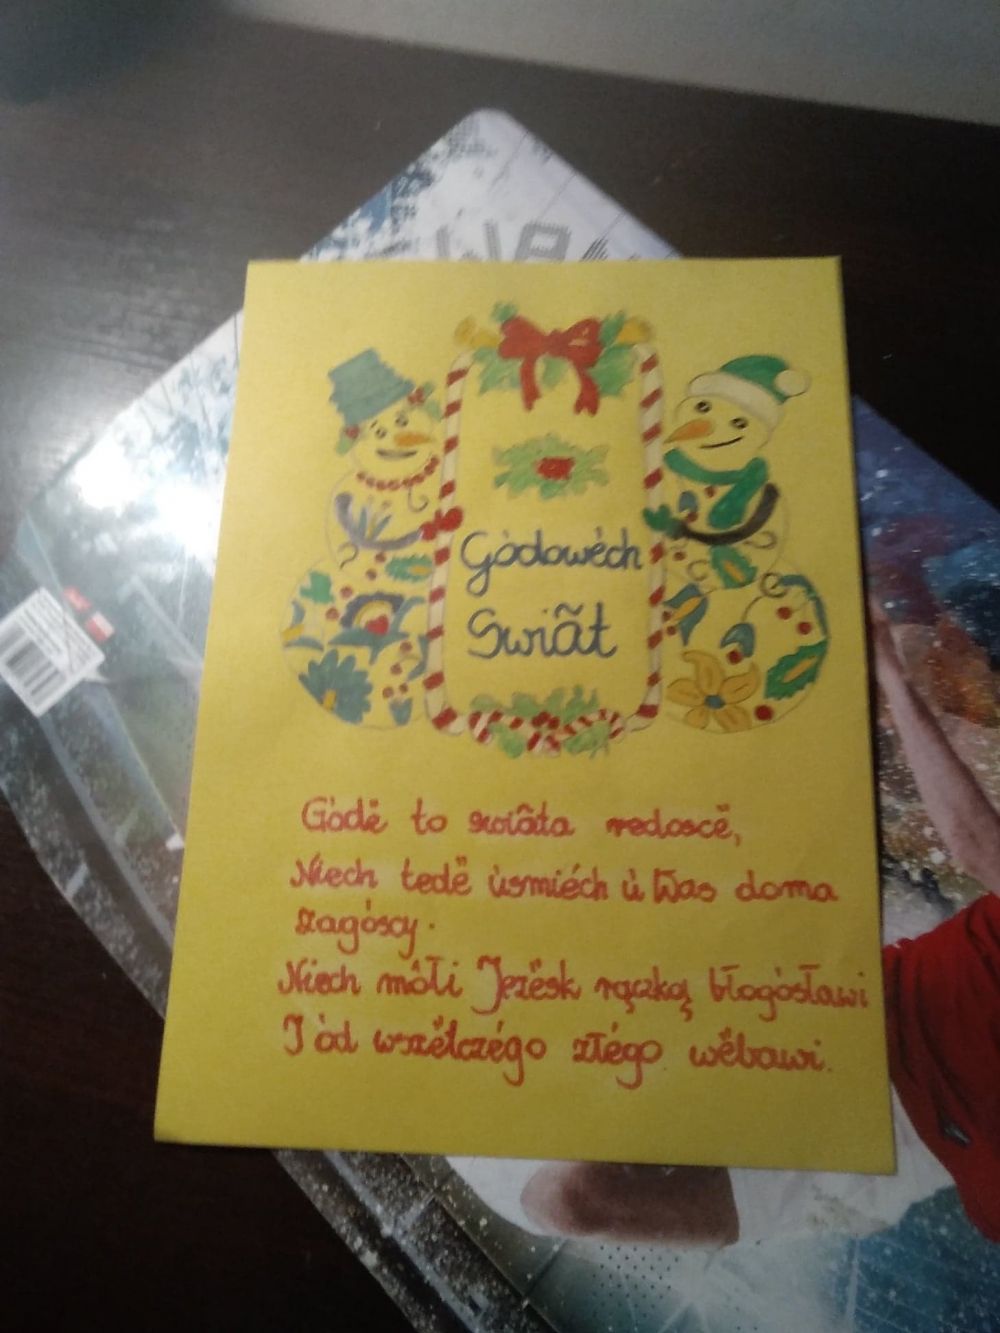 Gòdowëch
Swiãt
Gòdë to swiãta redoscë,
Niech tedë ùsmiéch ù Was doma
zagòscy.
Niech môłi Jezësk rączką błogòsławi
I òd wszëtczégo złégo wëbawi.